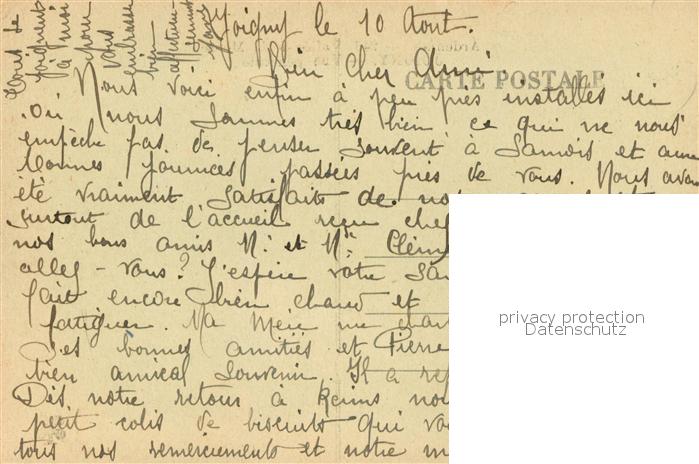 Joigny le 10 Aout.
Bien cher Ami
CARTE POSTALE
Nous voici enfin à peu près installés ici
où nous sommes très bien, ce qui ne nous
empêche pas de penser souvent à Samois et aux
bonnes journées passées près de vous. Nous avons
été vraiment satisfaits de
surtout de l'accueil reçu chez
nos bons amis M. et Me
allez-vous? J'espère votre
fait encore bien chaud et
fatiguer. Ma Mère me
Ses bonnes amitiés et Pierre
bien amical souvenir. Il a
Dès notre retour à Reims
petit colis de biscuits qui
tous nos remerciements et notre
Tous se
joignent
à moi
pour
vous
embrasser
bien
privacy protection
Datenschutz